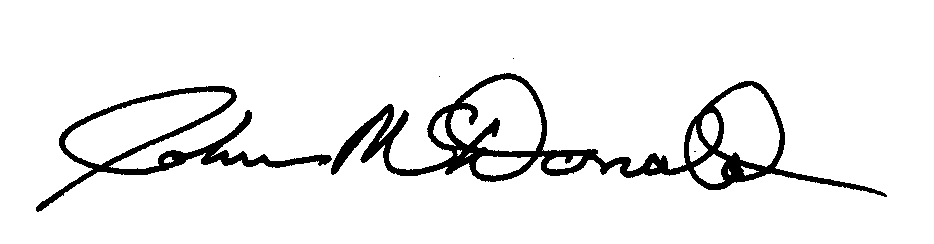 John McDonald